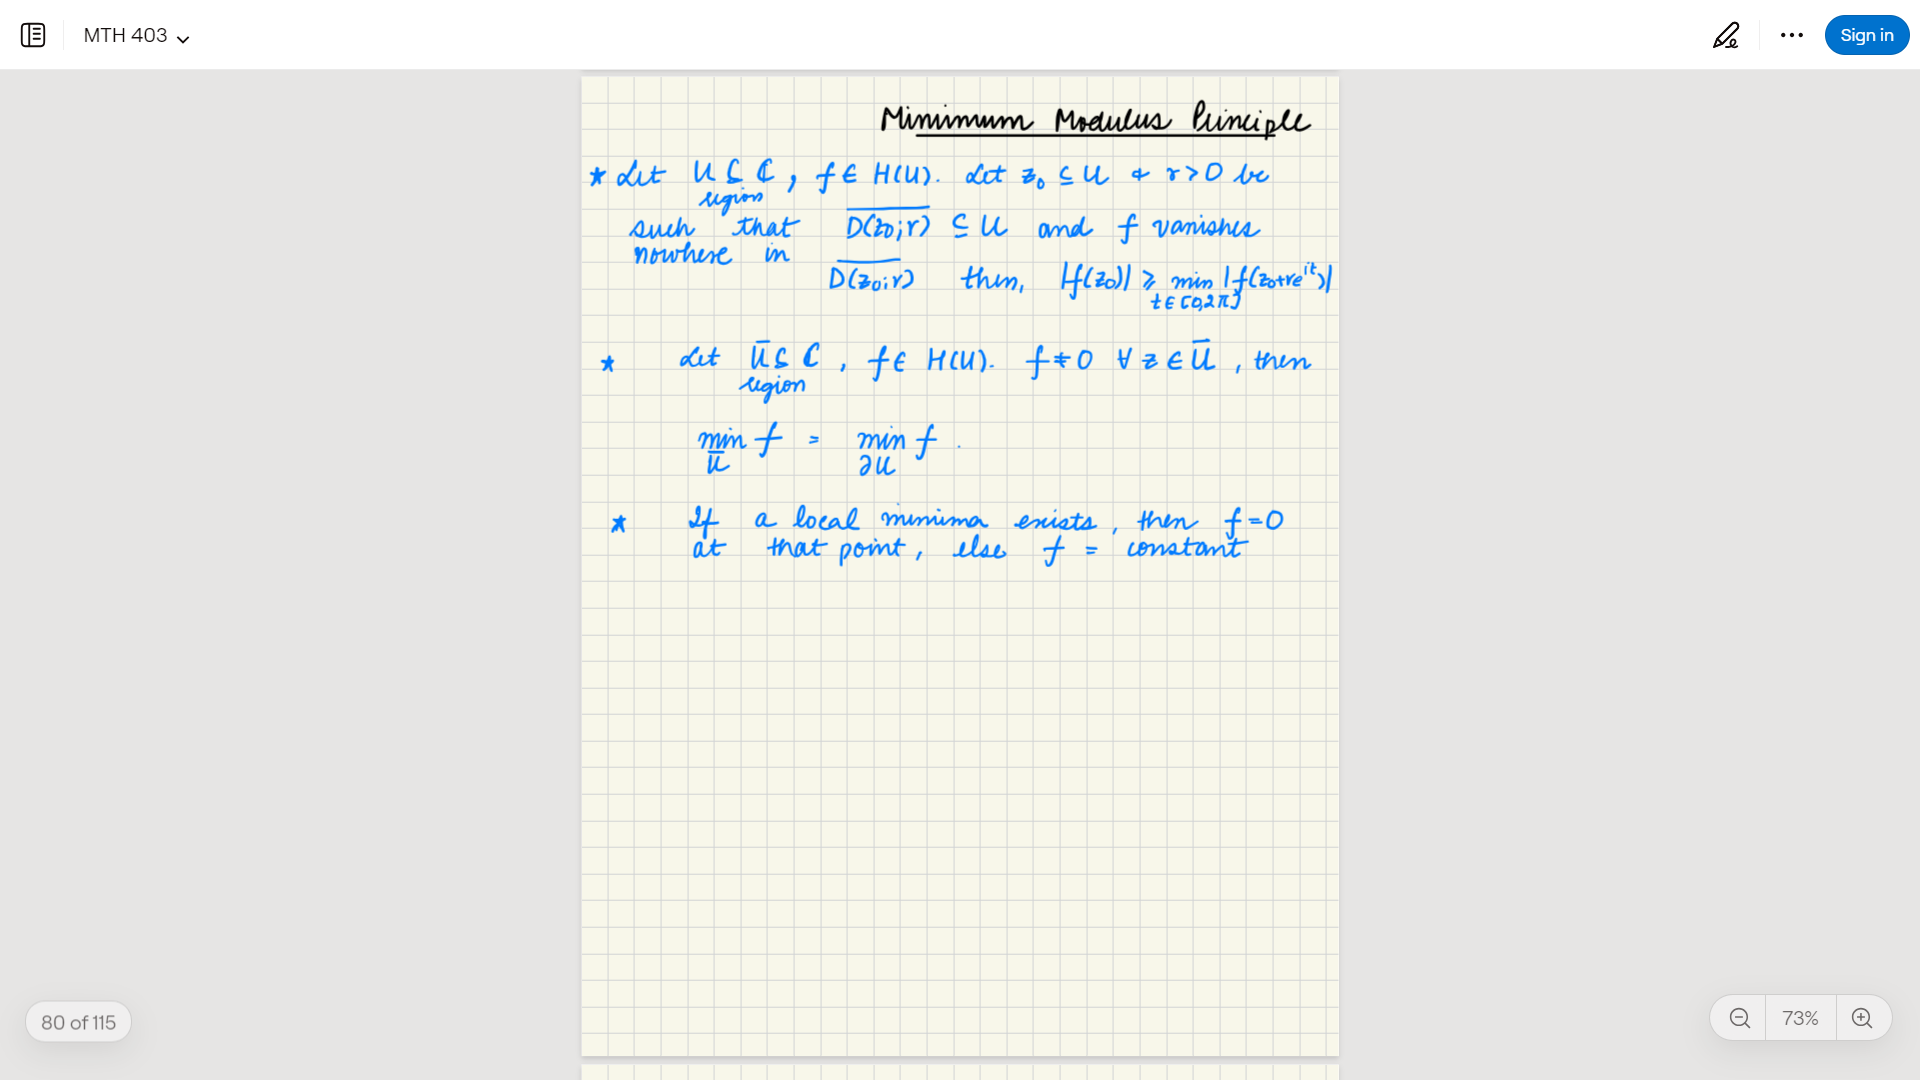 MTH 403
Sign in
Minimum Modulus Principle
* Let U ⊆ ℂ, f ∈ H(U). Let z₀ ⊆ U & r > 0 be
region
such that D(z₀;r)‾ ⊆ U and f vanishes
nowhere in
D(z₀;r)‾ then, |f(z₀)| ⩾ min |f(z₀+re^{it})|
t ∈ [0,2π]
* Let Ū ⊆ ℂ, f ∈ H(U). f ≠ 0 ∀ z ∈ Ū, then
region
min f = min f.
Ū ∂U
* If a local minima exists, then f = 0
at that point, else f = constant
80 of 115
73%